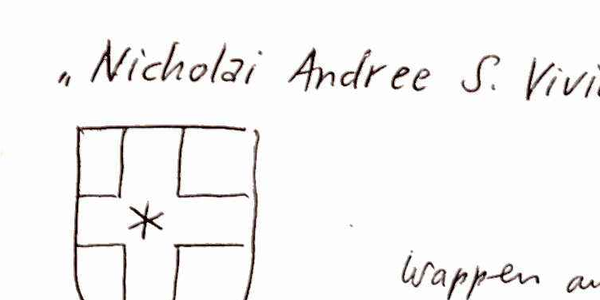 „Nicholai Andree S. Vivi
Wappen